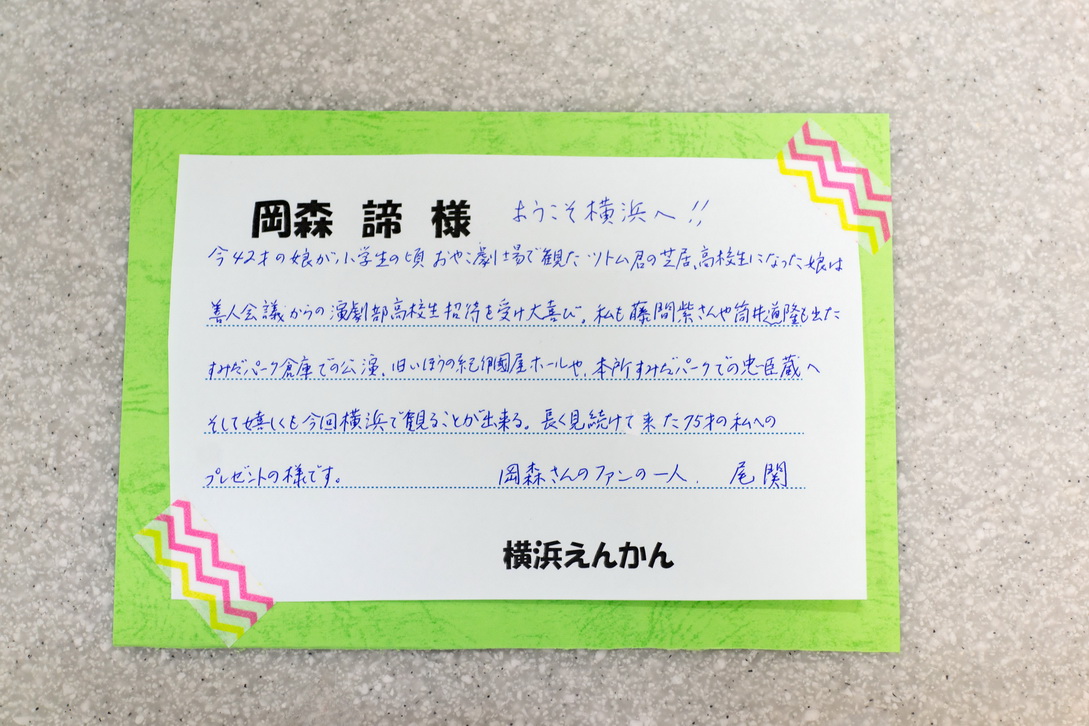 岡森 諦 様 ようこそ横浜へ!!
今42才の娘が小学生の頃おやこ劇場で観たツトム君の芝居、高校生になった娘は
善人会議からの演劇部高校生招待を受け大喜び。私も藤間紫さんや筒井道隆も出た
すみだパーク倉庫での公演、旧いほうの紀伊國屋ホールや、本所すみだパークでの忠臣蔵へ
そして嬉しくも今回横浜で観ることが出来る。長く見続けて来た75才の私への
プレゼントの様です。 岡森さんのファンの一人. 尾関
横浜えんかん